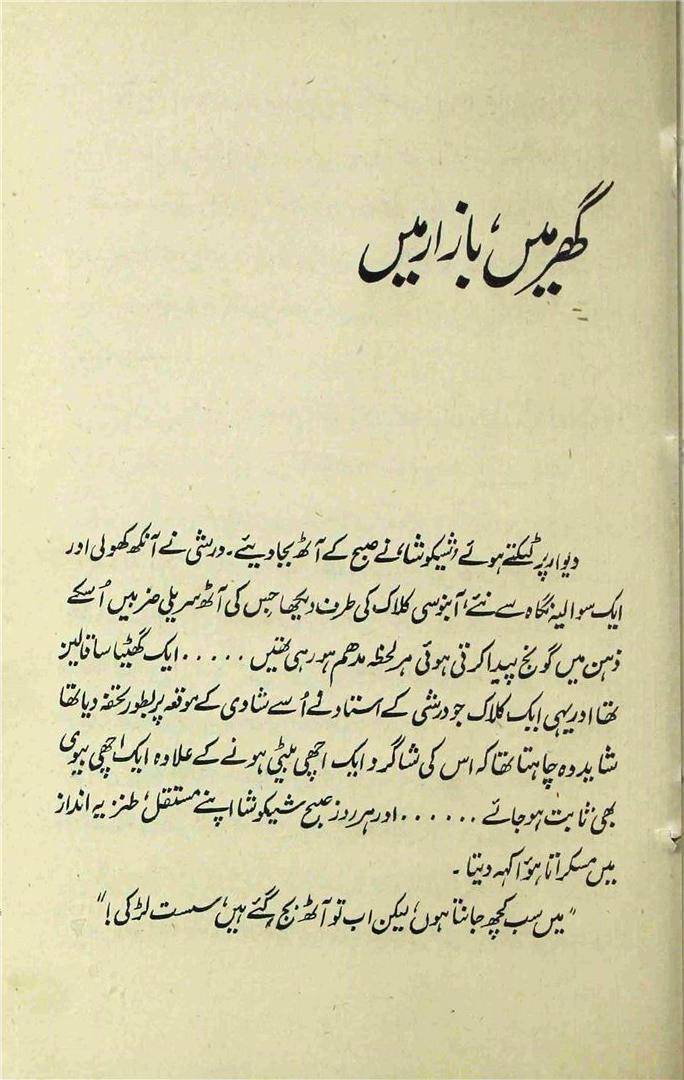 گھر میں، بازار میں
دیوار پر ٹکتے ہوئے شیکو شانے صبح کے آٹھ بجا دیئے۔ درشی نے آنکھ کھولی اور
ایک سوالیہ نگاہ سے نئے، آبنوسی کلاک کی طرف دیکھا جس کی آٹھ سریلی ضربیں اُسکے
ذہن میں گونج پیدا کرتی ہوئی ہر لحظہ مدھم ہو رہی تھیں ..... ایک گھٹیا سا قالین
تھا اور یہی ایک کلاک جو درشی کے استاد نے اُسے شادی کے موقعہ پر بطور تحفہ دیا تھا
شاید وہ چاہتا تھا کہ اس کی شاگرد ایک اچھی بیٹی ہونے کے علاوہ ایک اچھی بیوی
بھی ثابت ہو جائے ...... اور ہر روز صبح شیکو شا اپنے مستقل، طنزیہ انداز
میں مسکراتا ہؤا کہہ دیتا۔
"میں سب کچھ جانتا ہوں، لیکن اب تو آٹھ بج گئے ہیں، سست لڑکی!"